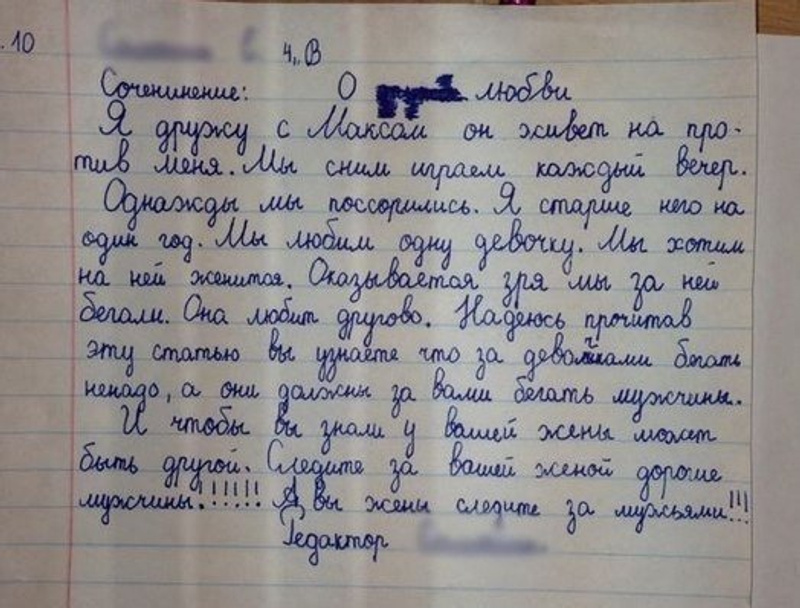 . 10
4 „В
Соченинение: О любви
Я дружу с Максам он живет на про-
тив меня. Мы сним играем каждый вечер.
Однажды мы поссорились. Я старше него на
один год. Мы любим одну девочку. Мы хотим
на ней женится. Оказывается зря мы за ней
бегали. Она любит другово. Надеюсь прочитав
эту статью вы узнаете что за девочками бегать
ненадо, а они должны за вами бегать мужчины.
И чтобы вы знали у вашей жены может
быть другой. Следите за вашей женой дорогие
мужчины!!!!!! А вы жены следите за мужьями!!!
Редактор